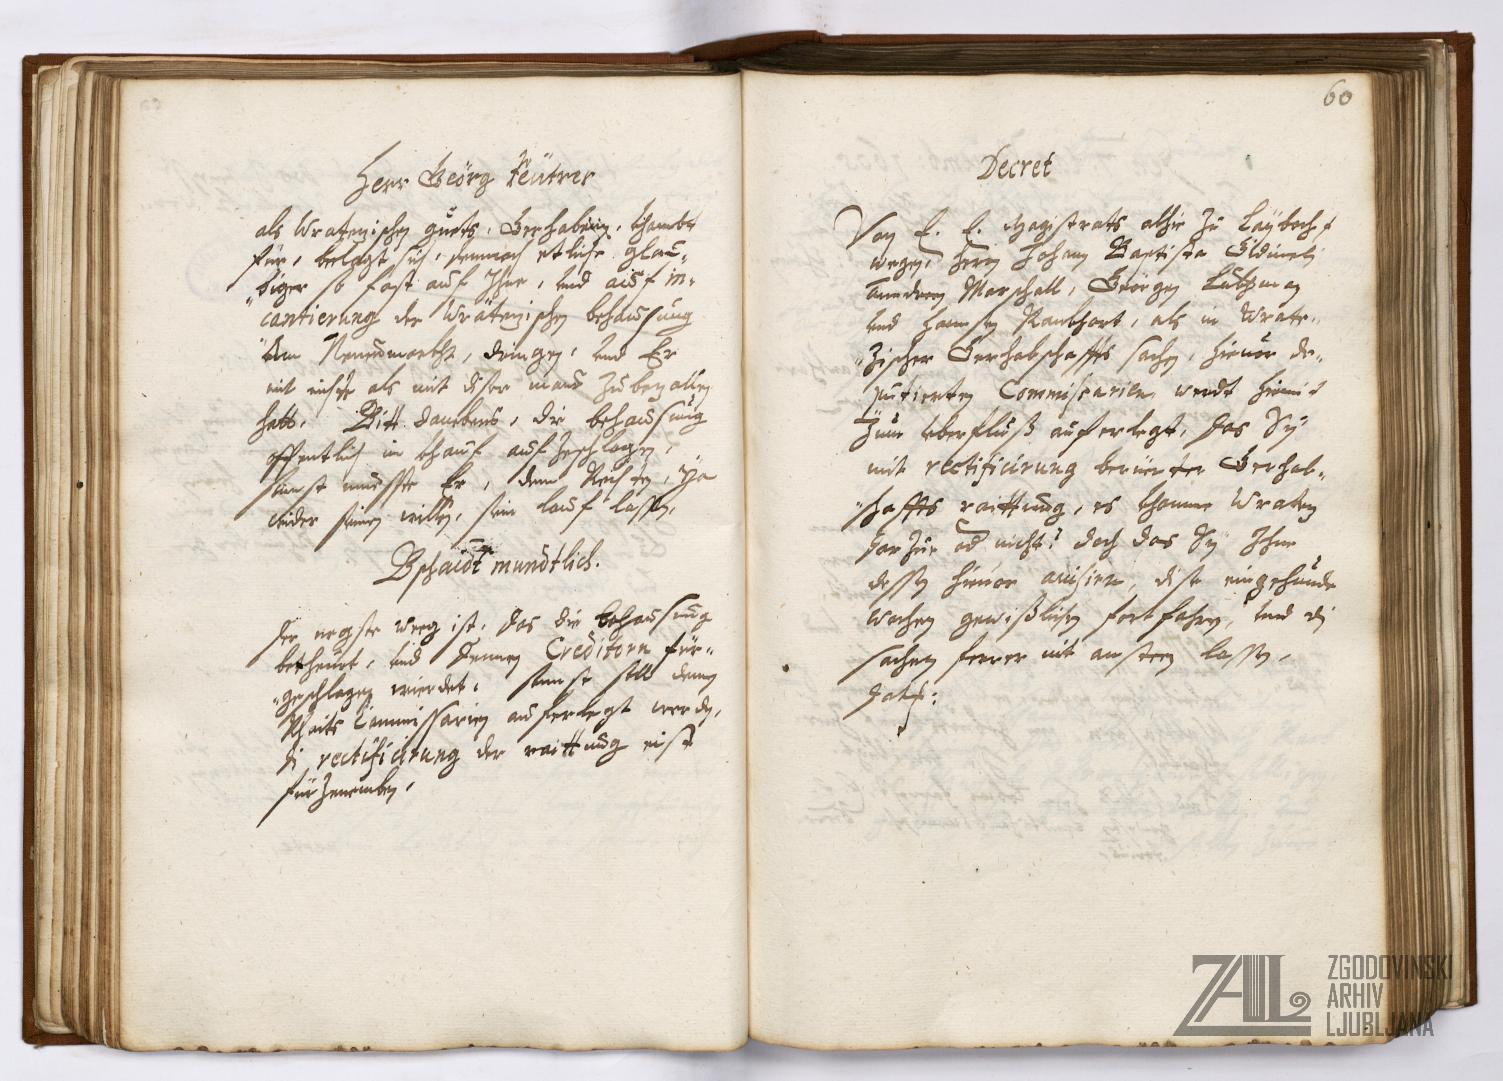 Herr Geörg Teütrer
als Wratezischen guets, Gerhabern, khombt
für, beclagt sich, demnach etliche glau„
„biger so fast auf Ihne, und auf in„
cantierung der Wrätezischen behausung
Am Neuenmarkht, dringen, und Er
mit nichte als mit diser mand zubezallen
hatt. Bitt danebens, die behausung
offentlich in khauf aufzuschlagen,
sunst muesste Er, dem Rechten, ja
wider seinen willen, sein lauf lassen.
Bschaidt mundtlich.
Der negste weeg ist, das die behausung
betheurt, und denen Creditorn für„
„geschlagen wierdet, sunst soll denen
Raits Commissarien auferlegt werden,
di rectificirung der raittung eist
fürzenemben.
60
Decret
Von E. E. Magistrats alhie zu Laybach
wegen, Herrn Johann Baptista Gldineli
Andreen Marschall, Geörgen Lukhman
und Hannsen Rankhart, als in Wrate„
„zischer Gerhabschaffts sachen, hieuor de„
putierten Commissarien, werdt hiemit
zum überfluß auferlegt, das Sy
mit rectificirung berüerter Gerhab„
„schaffts raittung, es khomme Wratez
darzue od nicht, doch das Sy Ihne
dessen hieuor avisiern, dise eingehunde
wochen gewißlichen fortfahren, und di
sachen ferrer nit ansteen lassen,
Datum:
ZAL
ZGODOVINSKI
ARHIV
LJUBLJANA